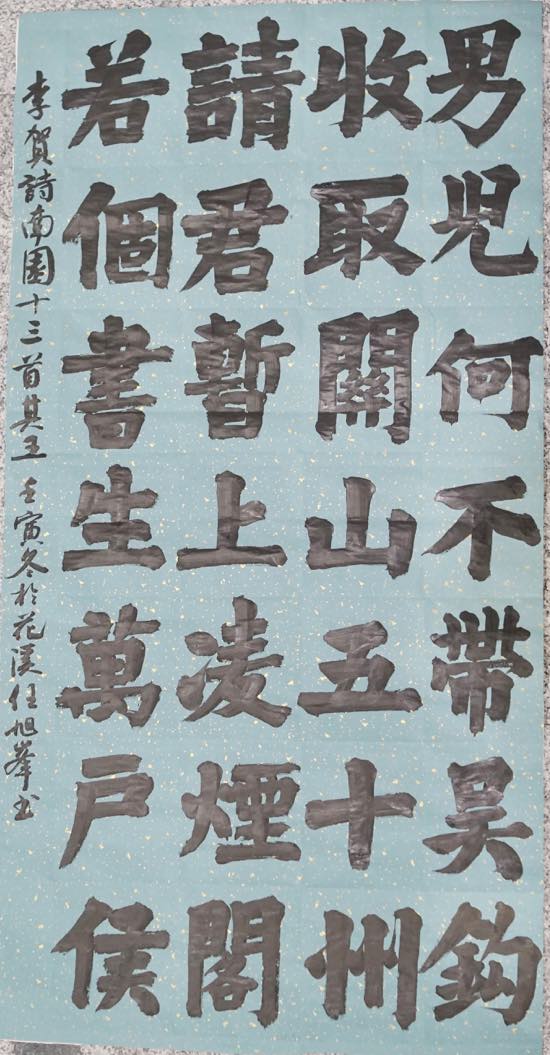 男兒何不帶吳鈎
收取關山五十州
請君暫上凌煙閣
若個書生萬戶侯
李賀詩南園十三首其五 壬寅冬於花溪任旭峯書